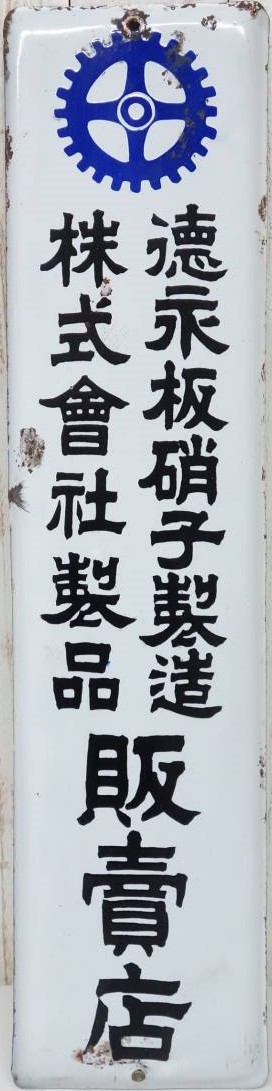 德永板硝子製造
株式會社製品
販賣店